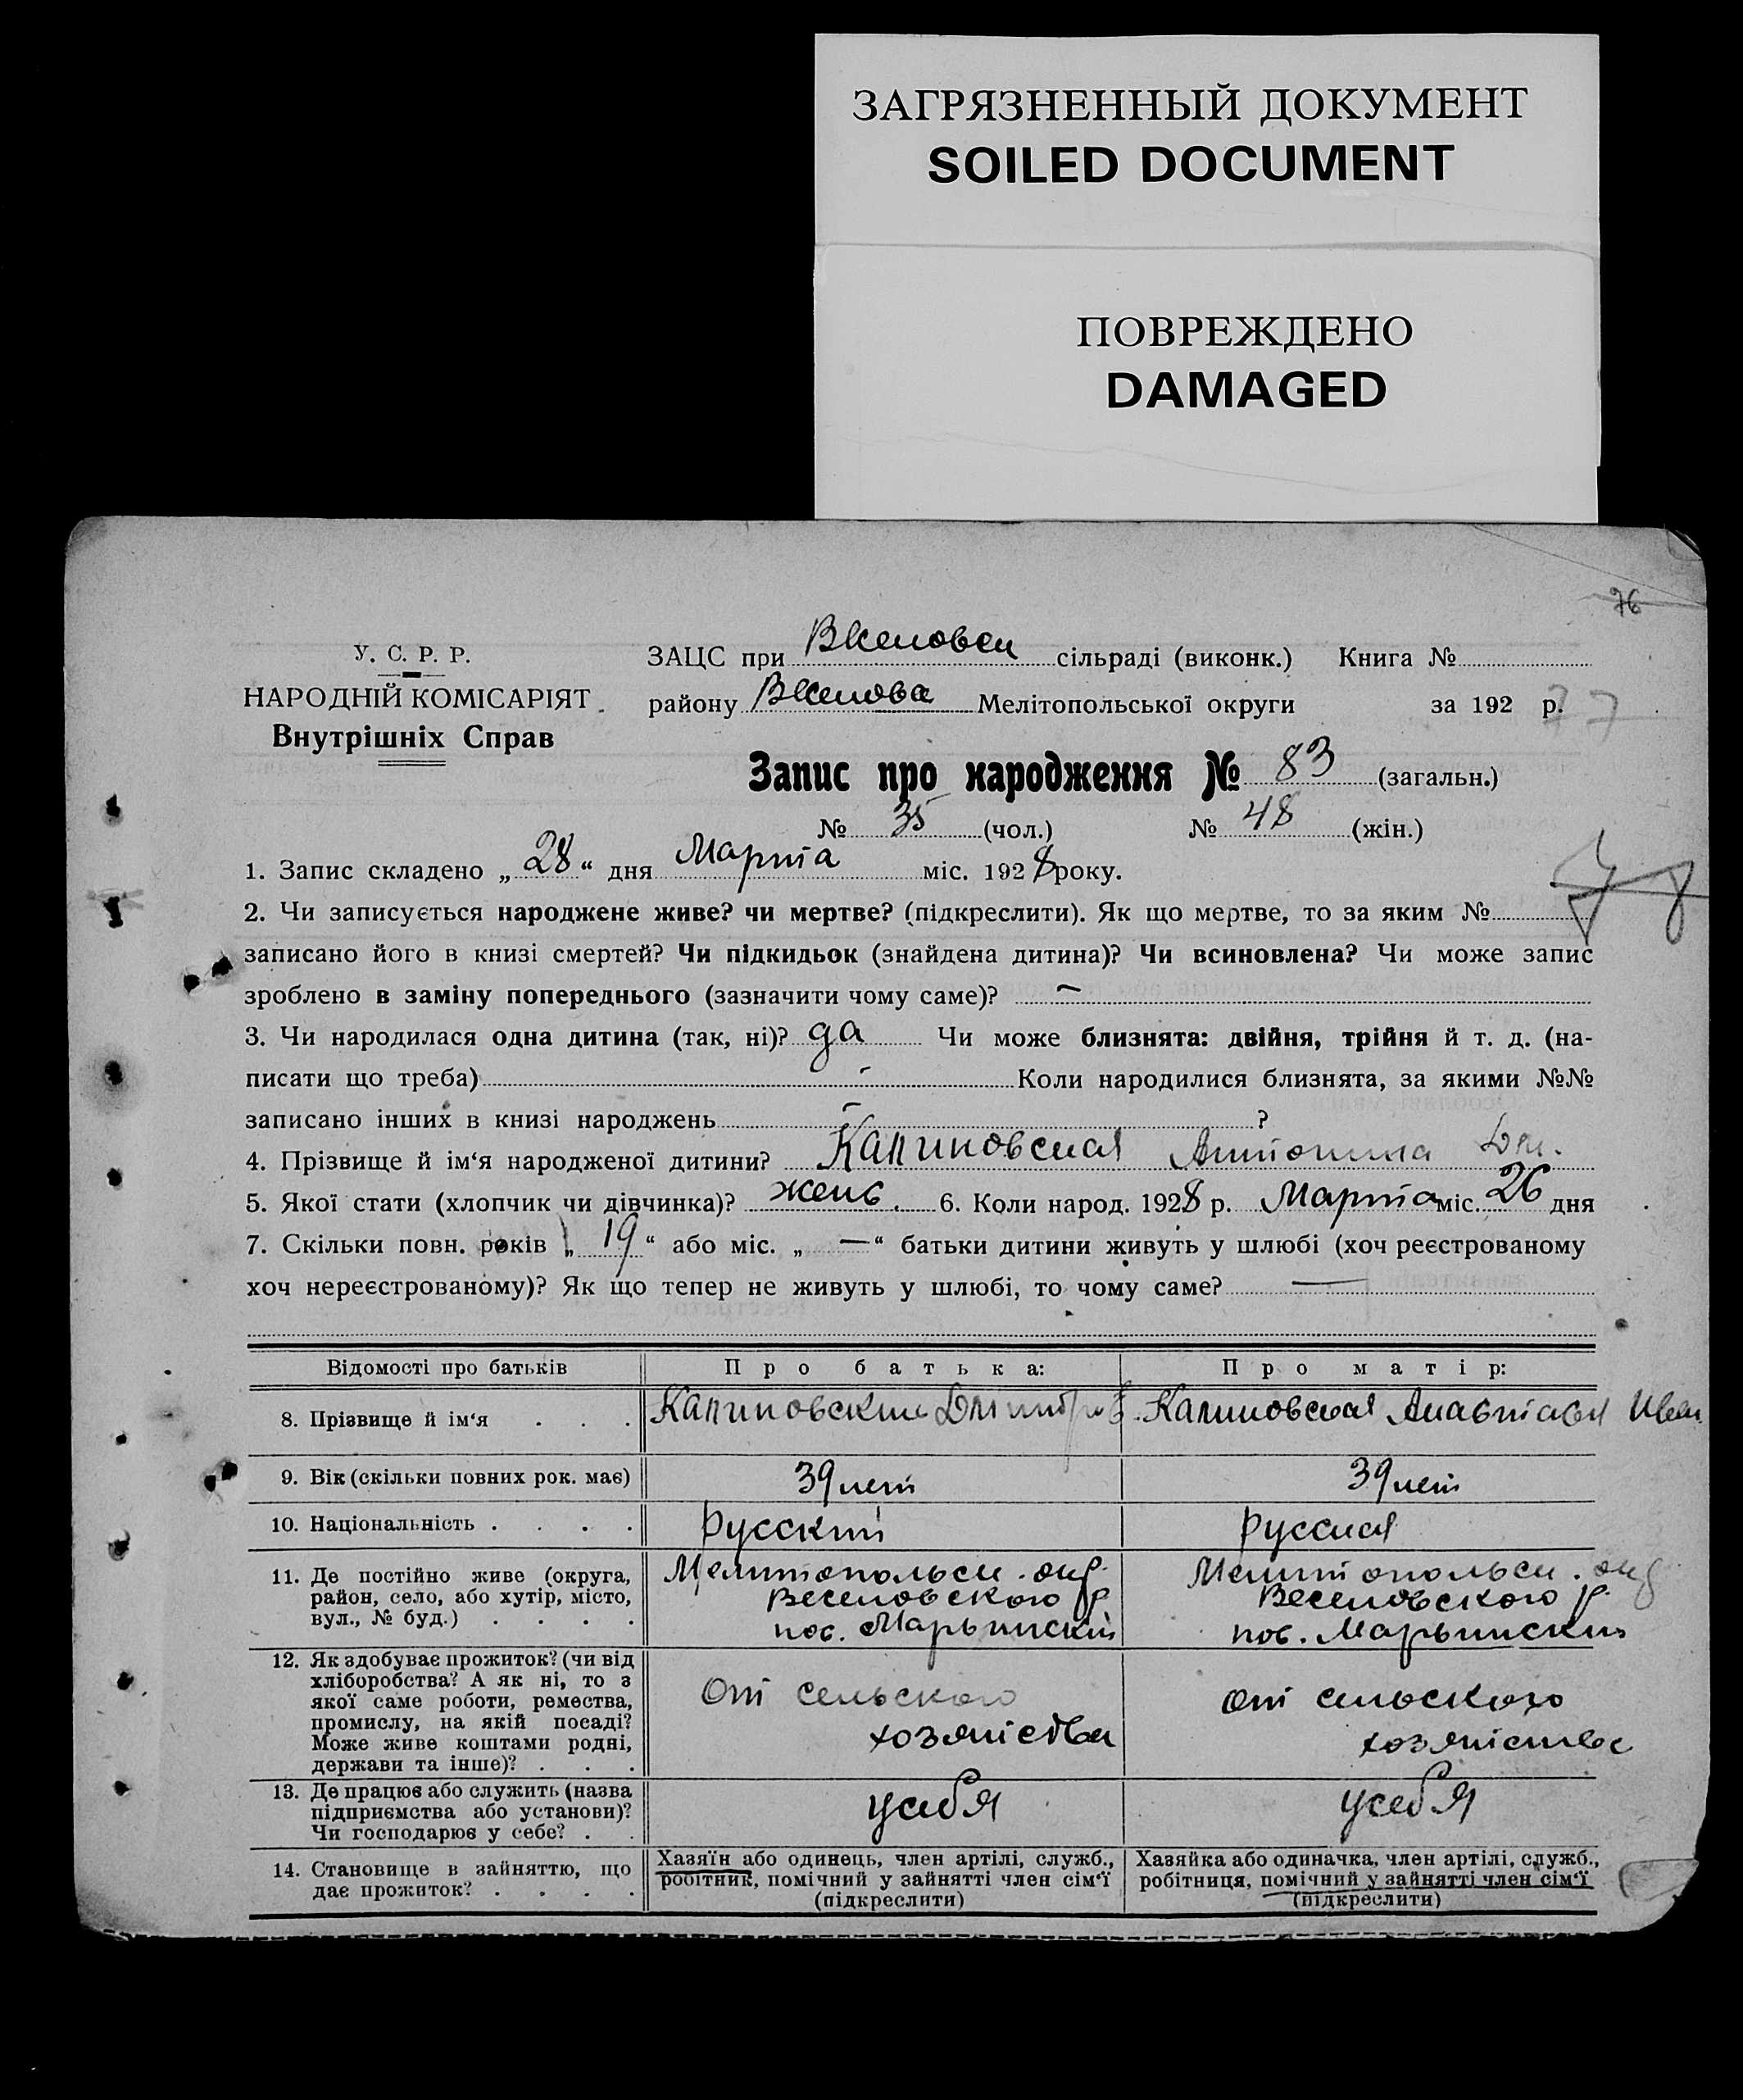 ЗАГРЯЗНЕННЫЙ ДОКУМЕНТ
SOILED DOCUMENT
ПОВРЕЖДЕНО
DAMAGED
76
У. С. Р. Р.
НАРОДНІЙ КОМІСАРІЯТ
Внутрішніх Справ
ЗАЦС при сільраді (виконк.) Книга №
району Мелітопольської округи за 192 р.
77
Запис про народження № 83 (загальн.)
№ 35 (чол.) № 48 (жін.)
1. Запис складено „ 28 “ дня Марта міс. 1928 року.
2. Чи записується народжене живе? чи мертве? (підкреслити). Як що мертве, то за яким №
записано його в книзі смертей? Чи підкидьок (знайдена дитина)? Чи всиновлена? Чи може запис
зроблено в заміну попереднього (зазначити чому саме)? —
3. Чи народилася одна дитина (так, ні)? да Чи може близнята: двійня, трійня й т. д. (на-
писати що треба) - Коли народилися близнята, за якими №№
записано інших в книзі народжень - ?
4. Прізвище й ім‘я народженої дитини? Калиновская Антонина Дм.
5. Якої стати (хлопчик чи дівчинка)? женс. 6. Коли народ. 1928 р. Марта міс. 26 дня
7. Скільки повн. років „ 19 “ або міс. „ — “ батьки дитини живуть у шлюбі (хоч реєстрованому
хоч нереєстрованому)? Як що тепер не живуть у шлюбі, то чому саме? —
Відомості про батьків Про батька: Про матір:
8. Прізвище й ім‘я . . . Калиновский Калиновская Анастасия Иван
9. Вік (скільки повних рок. має) 39 лет 39 лет
10. Національність . . . . Русский русская
11. Де постійно живе (округа, район, село, або хутір, місто, вул., № буд.) . . . .
Мелитопольск. окр. Мелитопольск. окр
Веселовского р Веселовского р.
пос. Марьинский пос. Марьинский
12. Як здобуває прожиток? (чи від хліборобства? А як ні, то з якої саме роботи, ремества, промислу, на якій посаді? Може живе коштами родні, держави та інше)? . . .
От сельского От сельского
хозяіства хозяіства
13. Де працює або служить (назва підприємства або установи)? Чи господарює у себе? . .
у себя у себя
14. Становище в зайняттю, що дає прожиток? . . . .
Хазяїн або одинець, член артілі, служб., робітник, помічний у зайнятті член сім‘ї (підкреслити)
Хазяйка або одиначка, член артілі, служб., робітниця, помічний у зайнятті член сім‘ї (підкреслити)